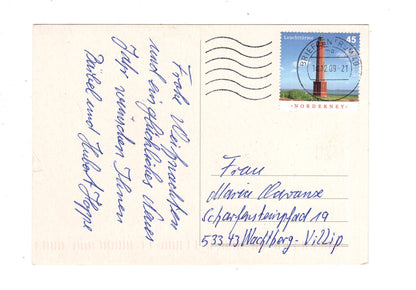 Frohe Weihnachten
und ein glückliches Neues
Jahr wünschen Ihnen
Bärbel und Hubert Hoppe
Leuchttürme 45
BRIEFZENTRUM
12.09-21
NORDERNEY
Frau
Maria
Scharfensteinpfad 19
53343 Wachtberg-Villip